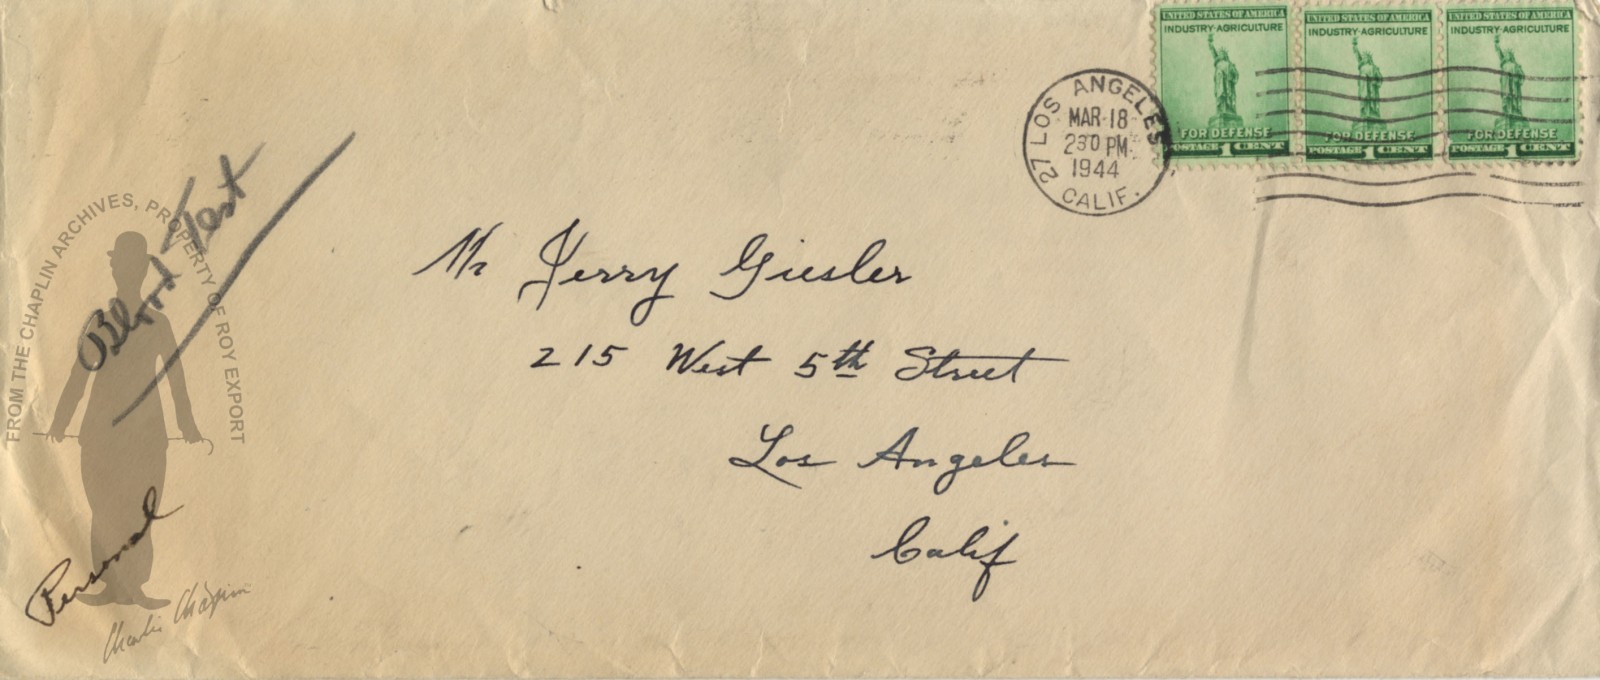 UNITED STATES OF AMERICA
INDUSTRY·AGRICULTURE
FOR DEFENSE
POSTAGE 1 CENT
UNITED STATES OF AMERICA
INDUSTRY·AGRICULTURE
FOR DEFENSE
POSTAGE 1 CENT
UNITED STATES OF AMERICA
INDUSTRY·AGRICULTURE
FOR DEFENSE
POSTAGE 1 CENT
27 LOS ANGELES
MAR 18
230 PM
1944
CALIF.
Blood Test
FROM THE CHAPLIN ARCHIVES, PROPERTY OF ROY EXPORT
Mr Jerry Giesler
215 West 5th Street
Los Angeles
Calif
Personal
Charlie Chaplin